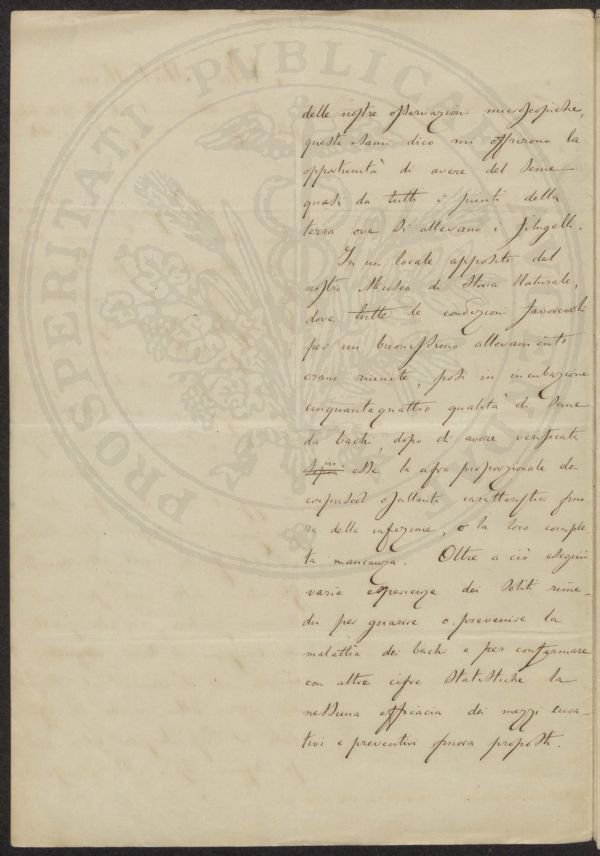 PROSPERITATI PUBLICAE
delle nostre osservazioni microscopiche,
questi esami dico mi offrirono la
opportunità di avere del seme
quasi da tutti i punti della
terra ove si allevano i filugelli.
In un locale apposito del
nostro Museo di Storia Naturale,
dove tutte le condizioni favorevoli
per un buonissimo allevamento
erano riunite, posi in incubazione
cinquantaquattro qualità di seme
da bachi, dopo di avere verificata
in esse la cifra proporzionale dei
corpuscoli oscillanti caratteristici fino-
ra della infezione, o la loro comple
ta mancanza. Oltre a ciò eseguii
varie esperienze dei soliti rime-
di per guarire o prevenire la
malattia dei bachi e per confermare
con altre cifre statistiche la
nessuna efficacia dei mezzi cura-
tivi e preventivi finora proposti.